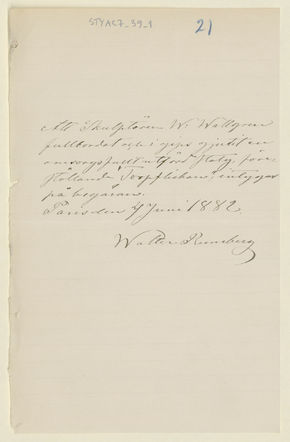 STYAC7_39_1
21
Att Skulptören W. Wallgren
fullbordat och i gips gjutit en
omsorgsfullt utförd staty, före-
ställande Torpflickan, intygas
på begäran.
Paris den 4 Juni 1882.
Walter Runeberg